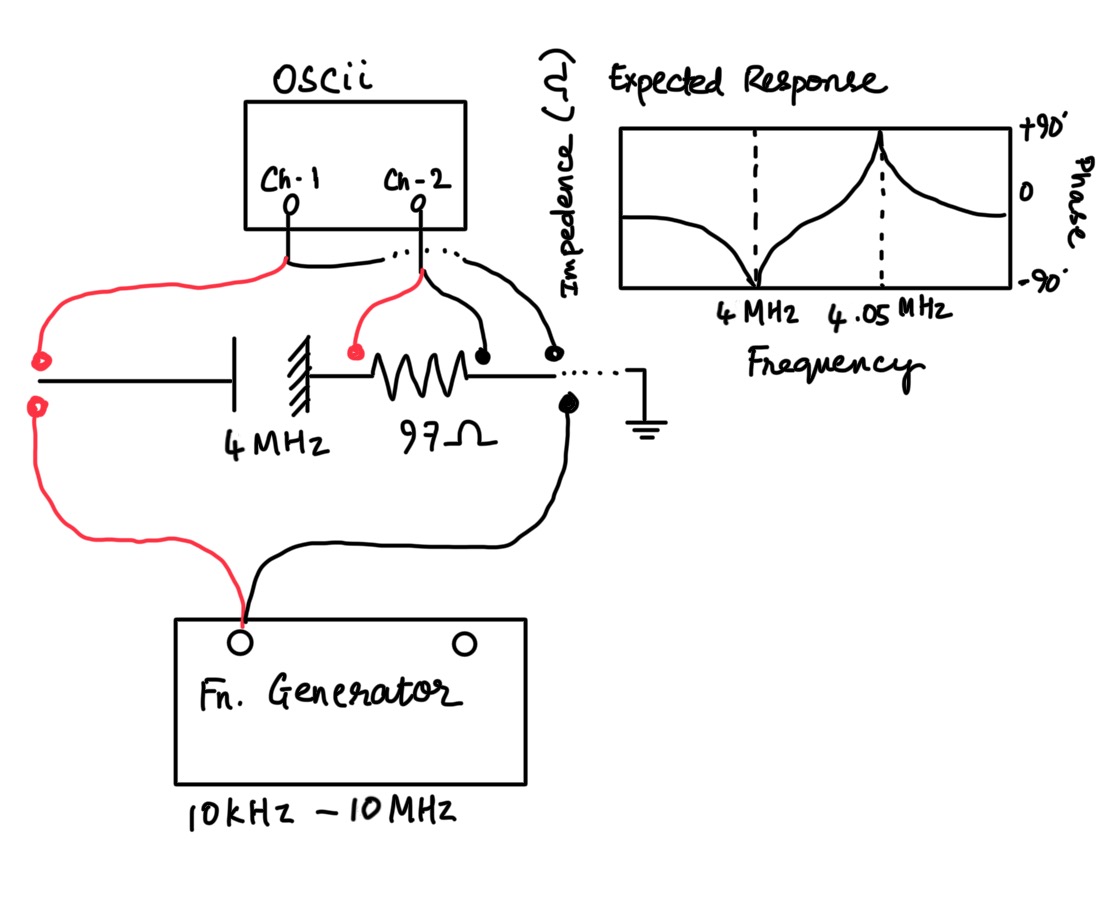 OSCii
Ch-1
Ch-2
4 MHz
97Ω
Fn. Generator
10kHz - 10MHz
Expected Response
Impedence (Ω)
+90°
0
-90°
Phase
4 MHz
4.05 MHz
Frequency